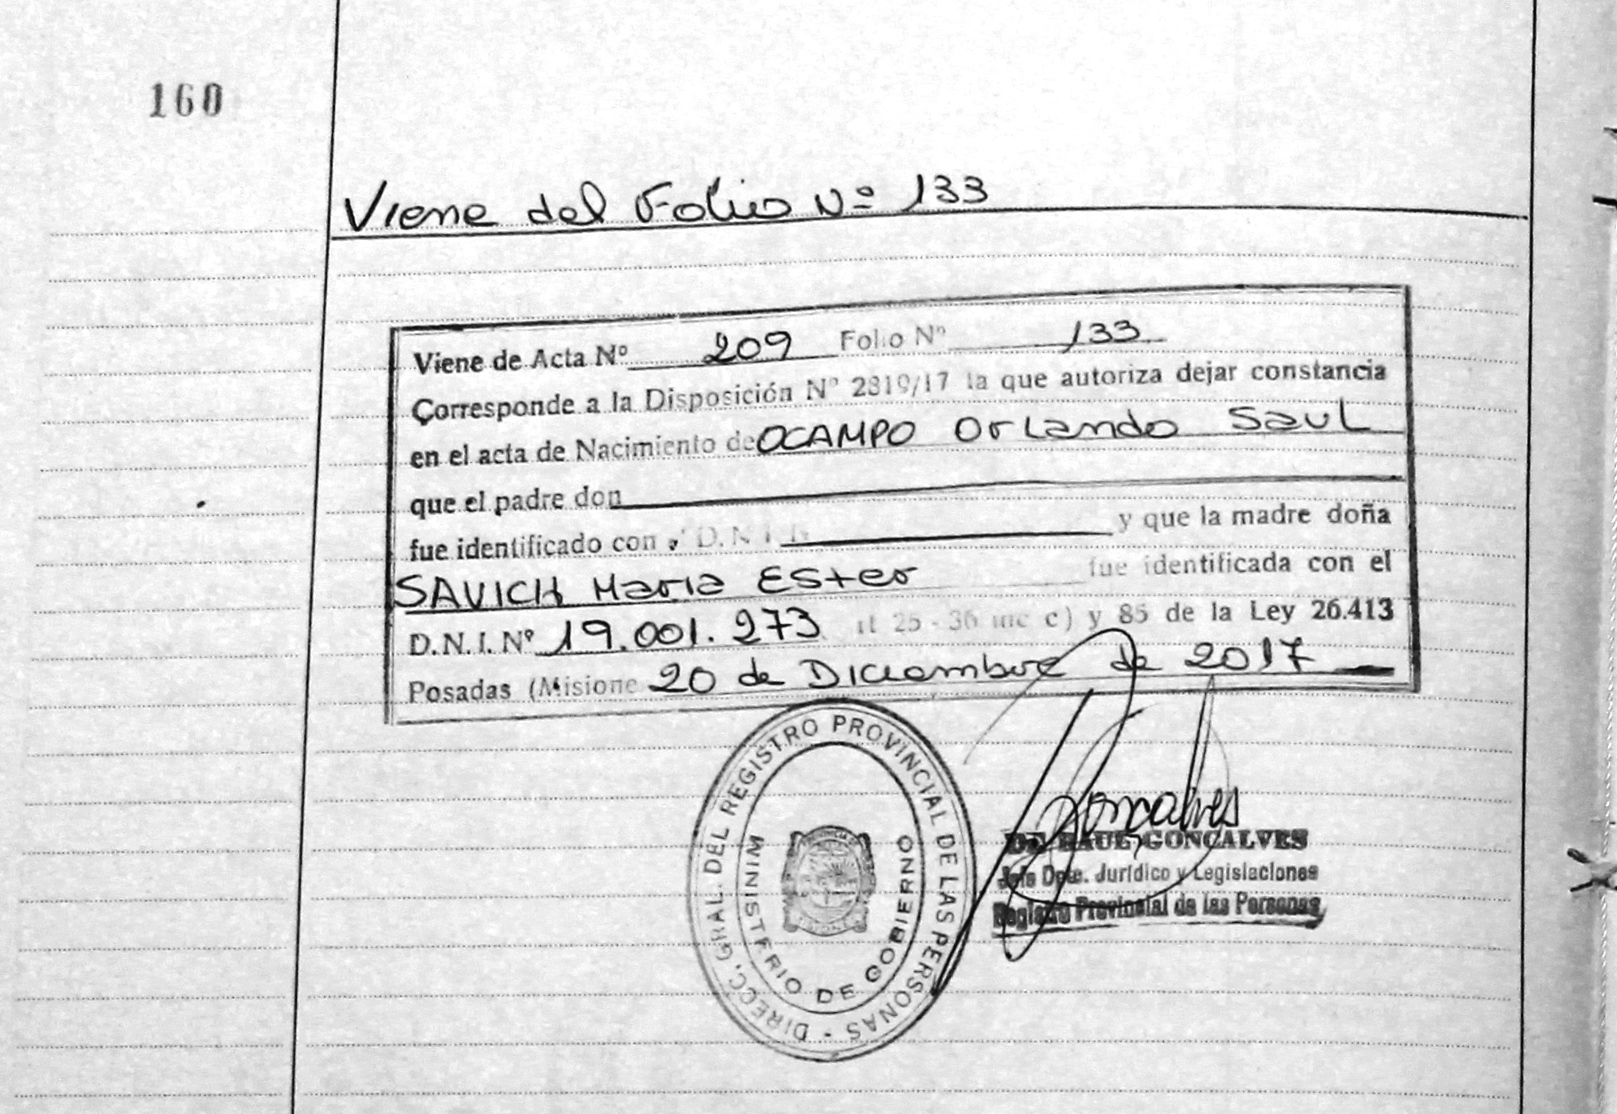 160
Viene del Folio Nº 133
Viene de Acta Nº 209 Folio Nº 133
Corresponde a la Disposición Nº 2819/17 la que autoriza dejar constancia
en el acta de Nacimiento de OCAMPO Orlando Saul
que el padre don
fue identificado con D.N.I. y que la madre doña
SAVICH Maria Ester fue identificada con el
D.N.I. Nº 19.001.273 25 - 36 inc c) y 85 de la Ley 26.413
Posadas (Misione 20 de Diciembre de 2017
DIRECC. GRAL. DEL REGISTRO PROVINCIAL DE LAS PERSONAS -
MINISTERIO DE GOBIERNO
Goncalves
RAUL GONCALVES
Jefe Dpto. Jurídico y Legislaciones
Registro Provincial de las Personas